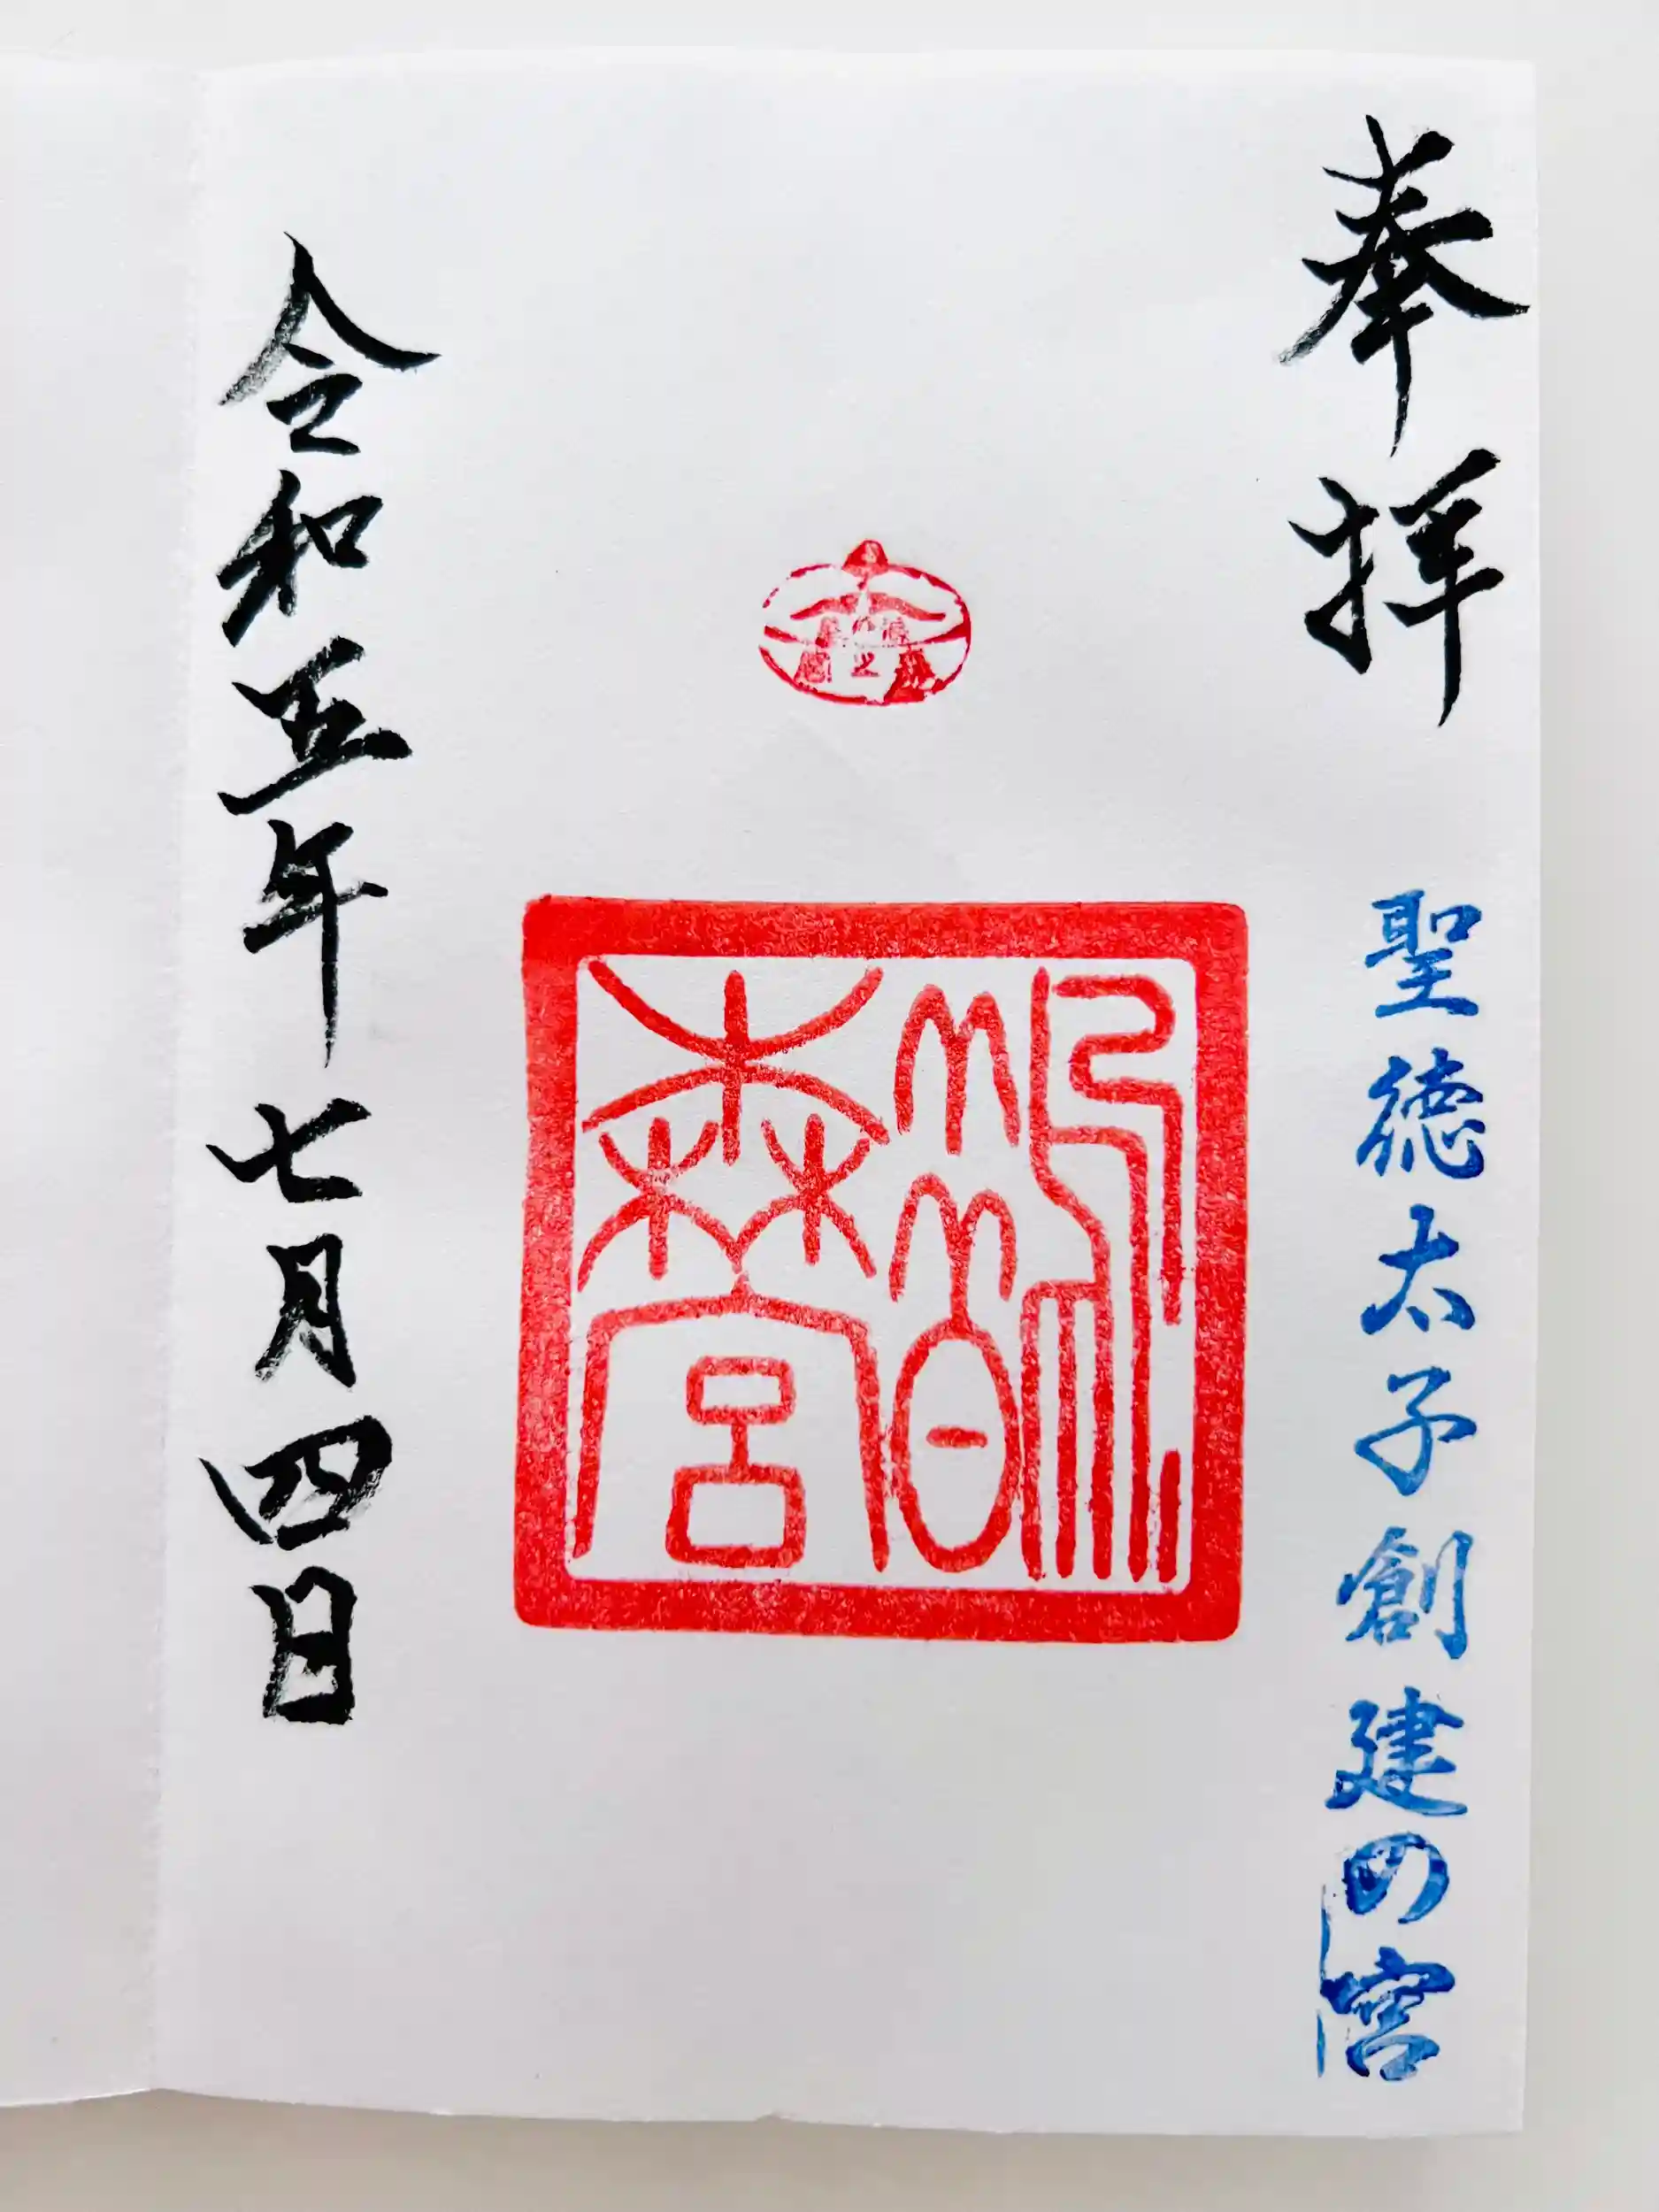 奉拝
聖徳太子創建の宮
鵲森宮
令和五年七月四日